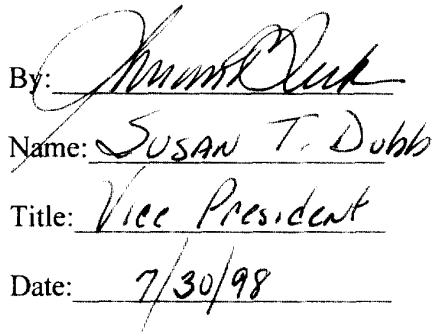 By:
Name: SUSAN T. Dubb
Title: Vice President
Date: 7/30/98